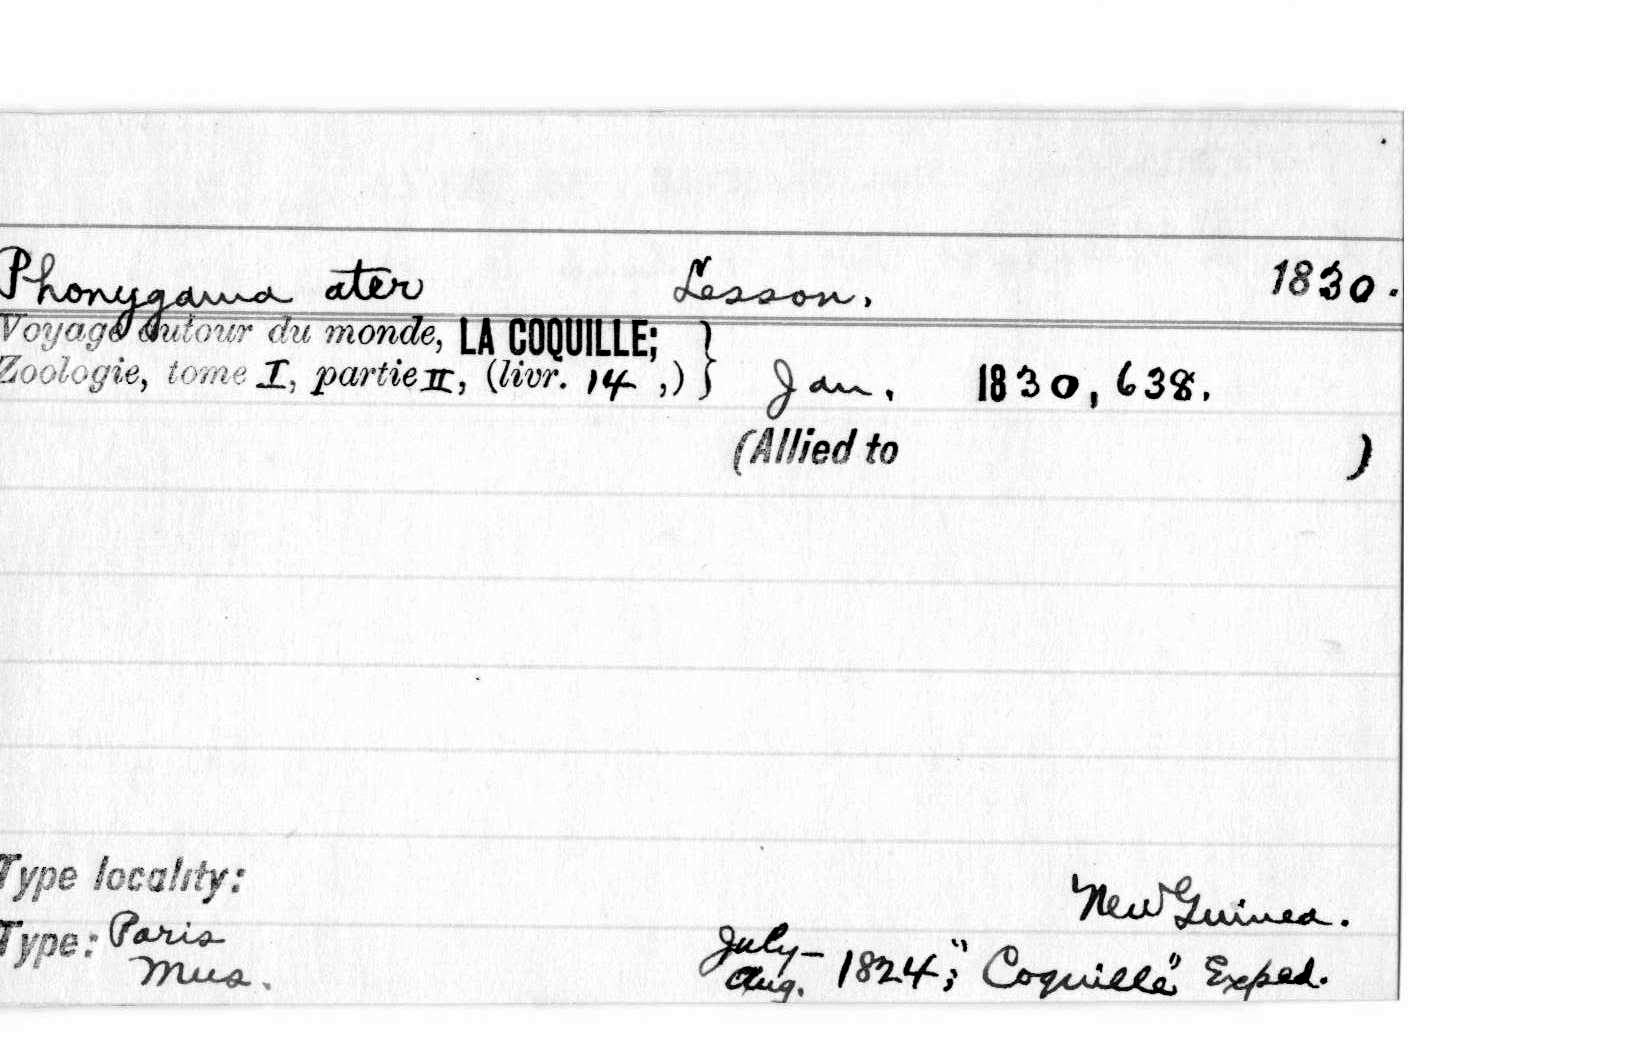 Phonygama ater Lesson. 1830.
Voyage autour du monde, LA COQUILLE;
Zoologie, tome I, partie II, (livr. 14 ,) } Jan. 1830, 638.
(Allied to )
Type locality: New Guinea.
Type: Paris Mus. July-Aug. 1824; "Coquille" Exped.